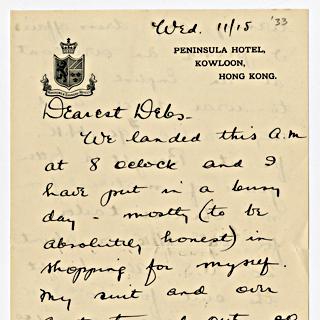 Wed. 11/15 '33
PENINSULA HOTEL,
KOWLOON,
HONG KONG.
Dearest Debs-
We landed this a.m
at 8 oclock and I
have put in a busy
day - mostly (to be
absolutely honest) in
shopping for myself.
My suit and over